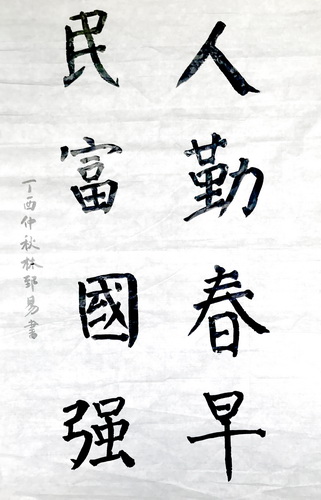 人勤春早
民富國强
丁酉仲秋林郅易書